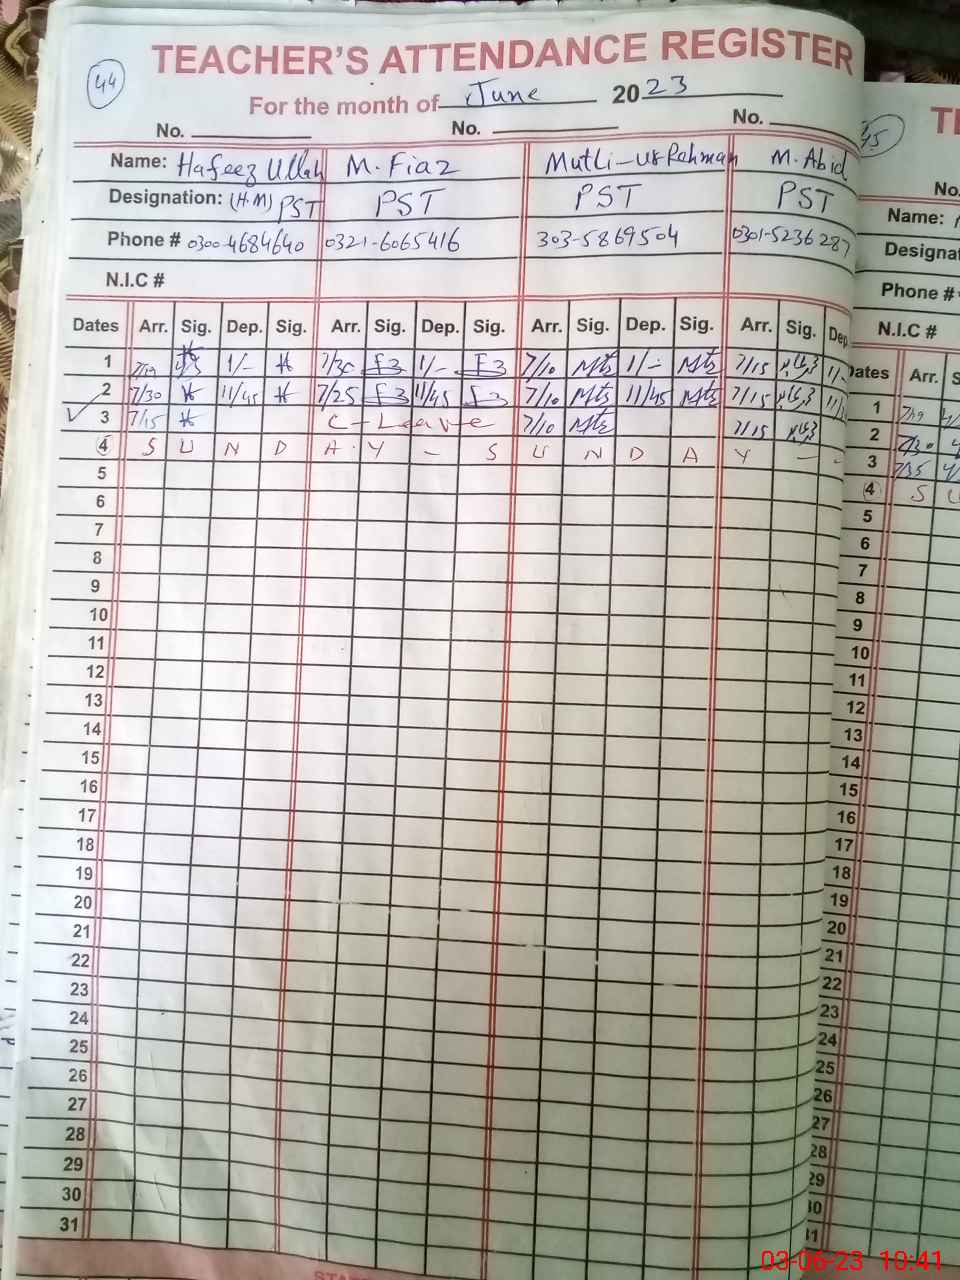 TEACHER'S ATTENDANCE REGISTER
44
For the month of June 2023
No. No. No.
Name: Hafeez Ullah M. Fiaz Mutli-ur Rehman M. Abid
Designation: (H.M) PST PST PST PST
Phone # 0300-4684640 0321-6065416 303-5869504 0301-5236287
N.I.C #
Dates Arr. Sig. Dep. Sig. Arr. Sig. Dep. Sig. Arr. Sig. Dep. Sig. Arr. Sig. Dep.
1 1/- 7/30 1/- 7/10 1/- 7/15 11/-
2 7/30 11/45 7/25 11/45 7/10 11/45 7/15
3 7/15 C-Leave 7/10 7/15
4 S U N D A.Y - S U N D A Y - -
5
6
7
8
9
10
11
12
13
14
15
16
17
18
19
20
21
22
23
24
25
26
27
28
29
30
31
45
No.
Name:
Phone #
N.I.C #
Arr.
1
2
3
4 S U
5
6
7
8
9
10
11
12
13
14
15
16
17
18
19
20
21
22
23
24
25
26
27
28
29
30
31
03-06-23 10:41